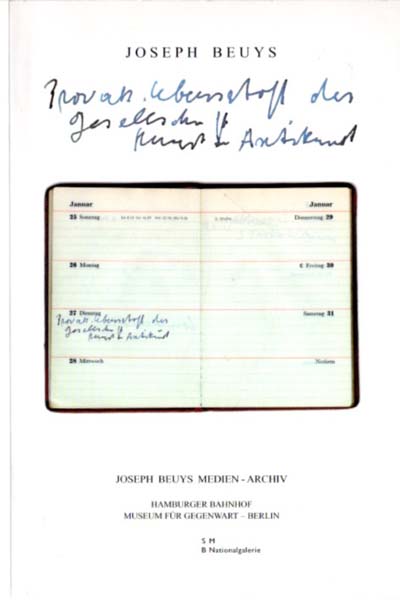 JOSEPH BEUYS
Provok. Lebensstoff der
Gesellschaft
Kunst u Antikunst
Januar
Januar
25 Sonntag
Donnerstag 29
26 Montag
Freitag 30
27 Dienstag
Samstag 31
Provok. Lebensstoff der
Gesellschaft
Kunst u Antikunst
28 Mittwoch
Notizen
JOSEPH BEUYS MEDIEN - ARCHIV
HAMBURGER BAHNHOF
MUSEUM FÜR GEGENWART – BERLIN
S M
B Nationalgalerie